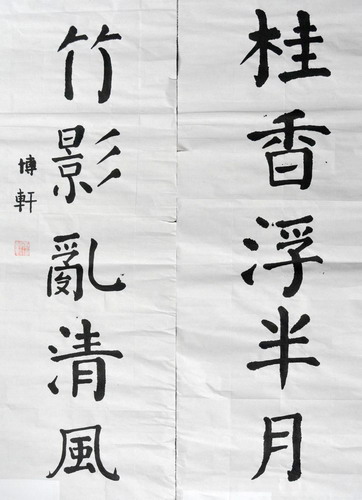 桂香浮半月
竹影亂清風
博軒